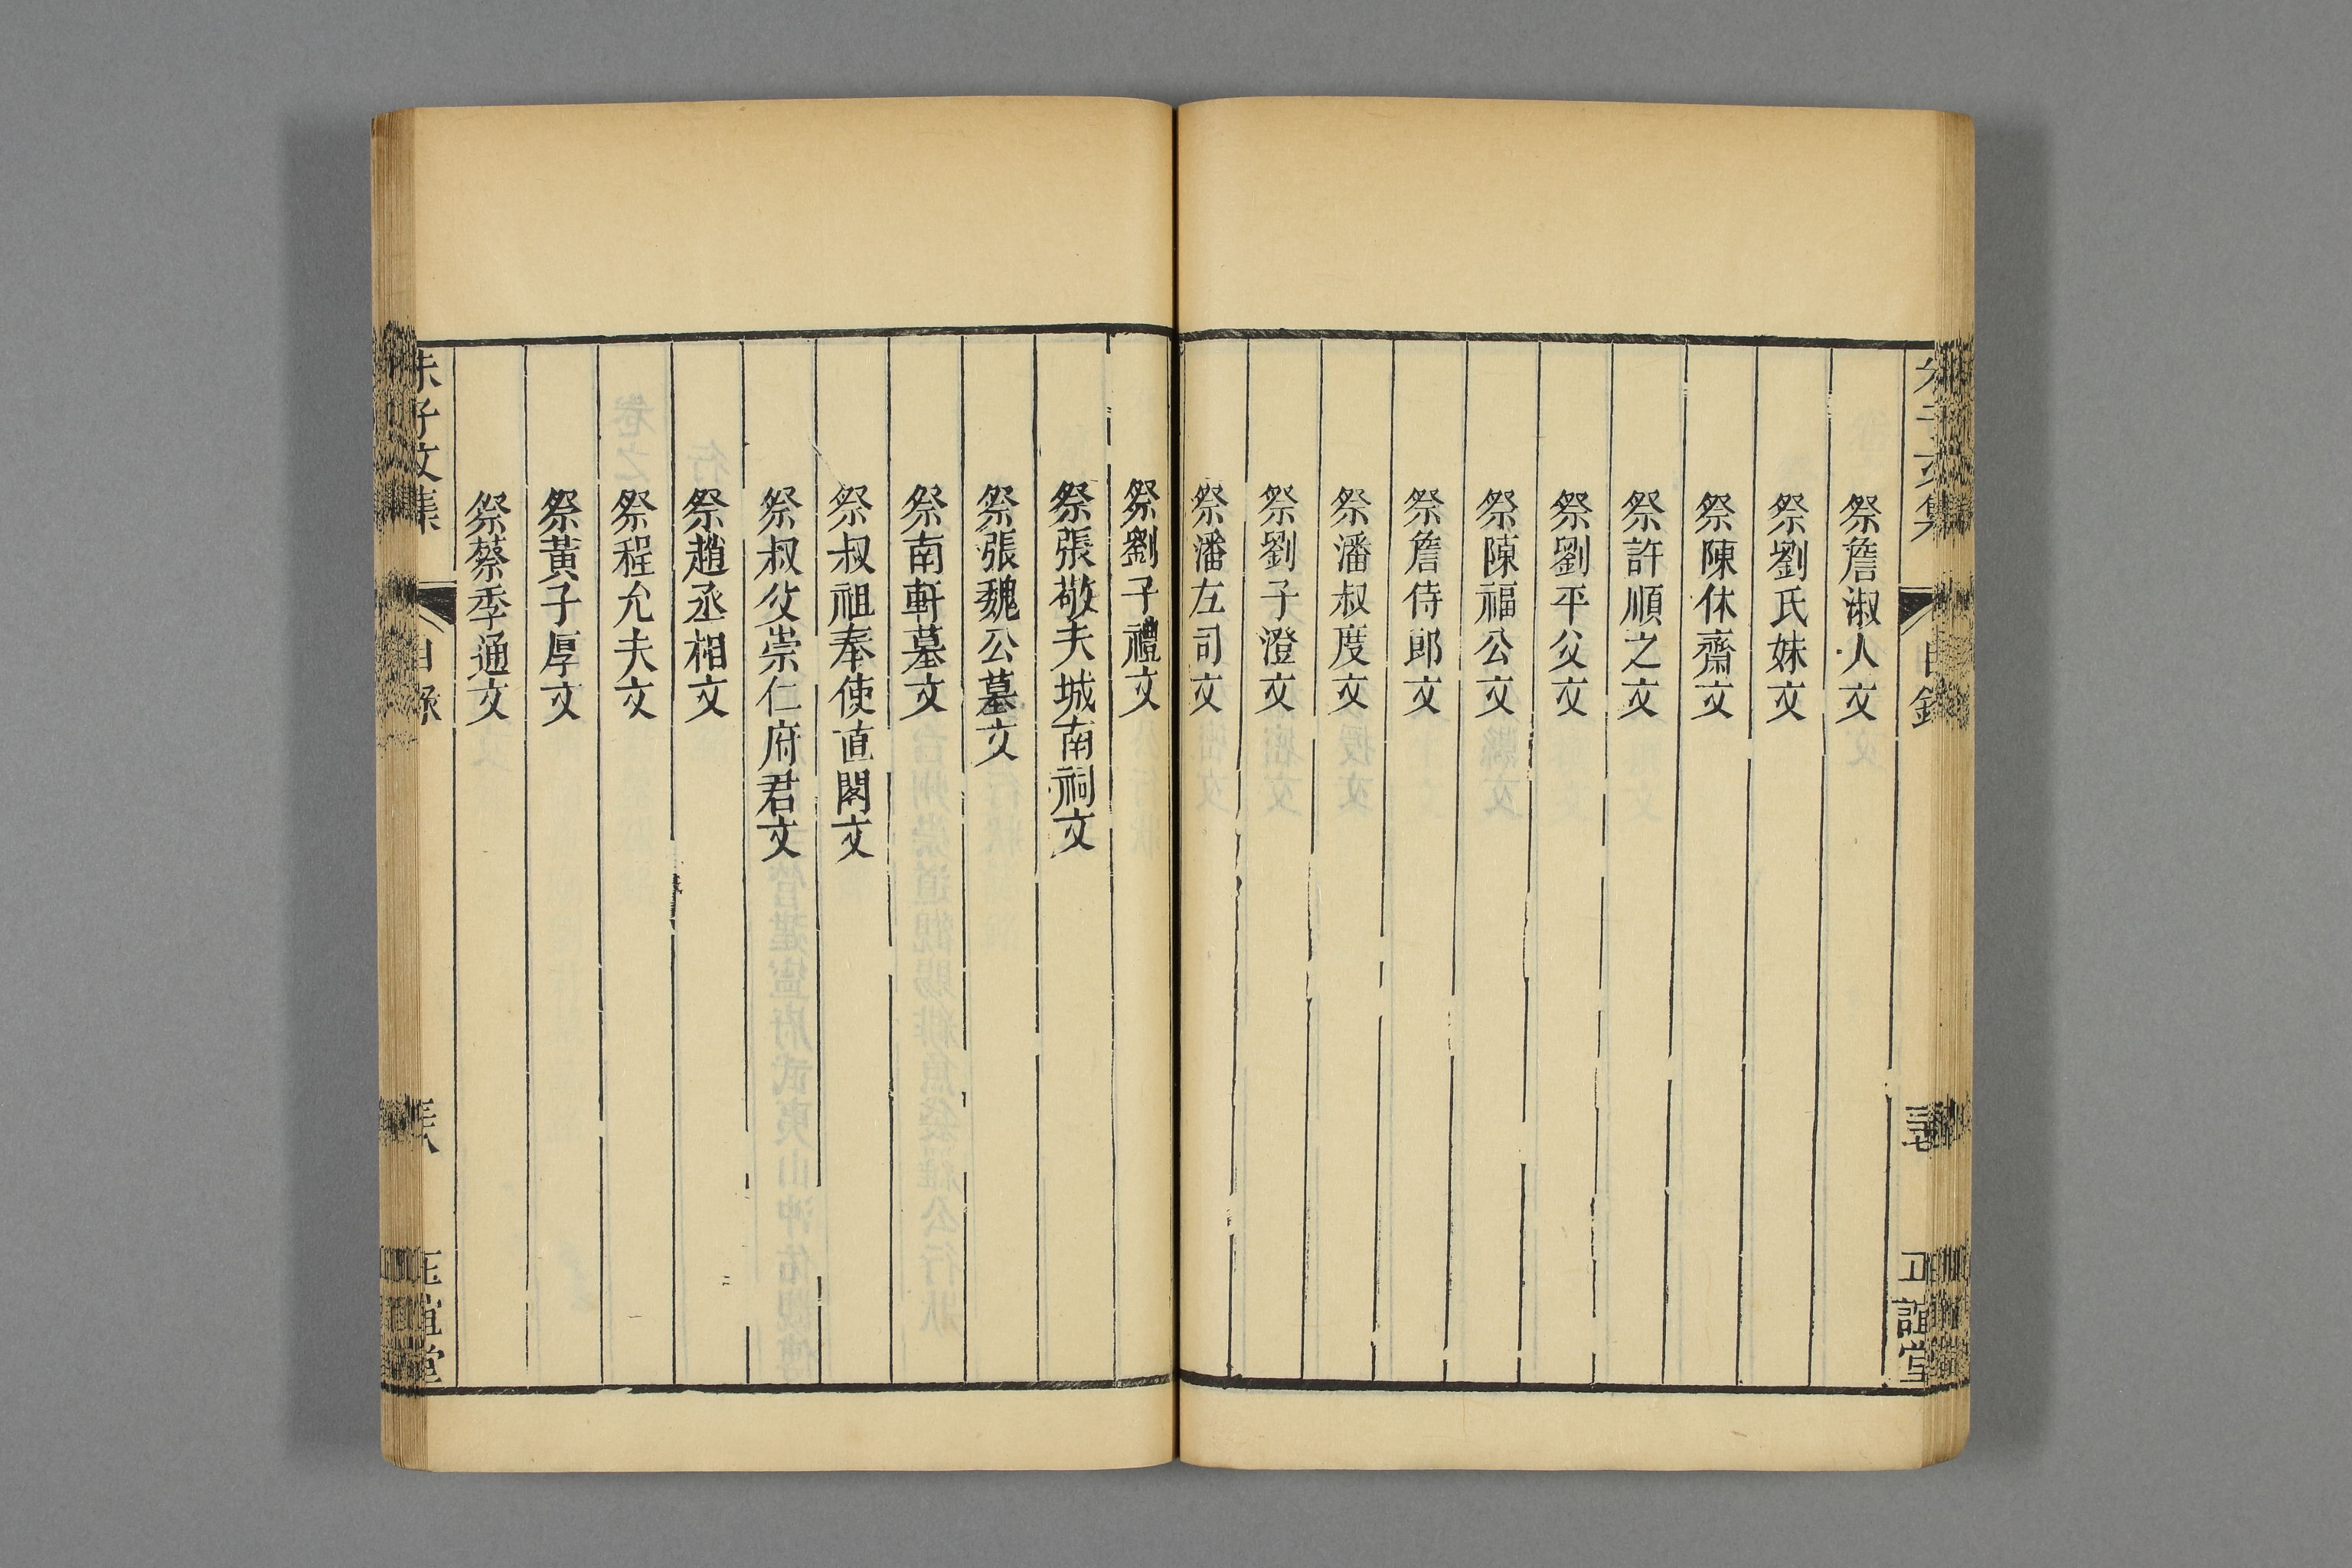 朱子文集 目錄 三十七 正誼堂
祭詹淑人文
祭劉氏妹文
祭陳休齋文
祭許順之文
祭劉平父文
祭陳福公文
祭詹侍郎文
祭潘叔度文
祭劉子澄文
祭潘左司文
祭劉子禮文
祭張敬夫城南祠文
祭張魏公墓文
祭南軒墓文
祭叔祖奉使直閣文
祭叔父崇仁府君文
祭趙丞相文
祭程允夫文
祭黃子厚文
祭蔡季通文
朱子文集 目錄 正誼堂